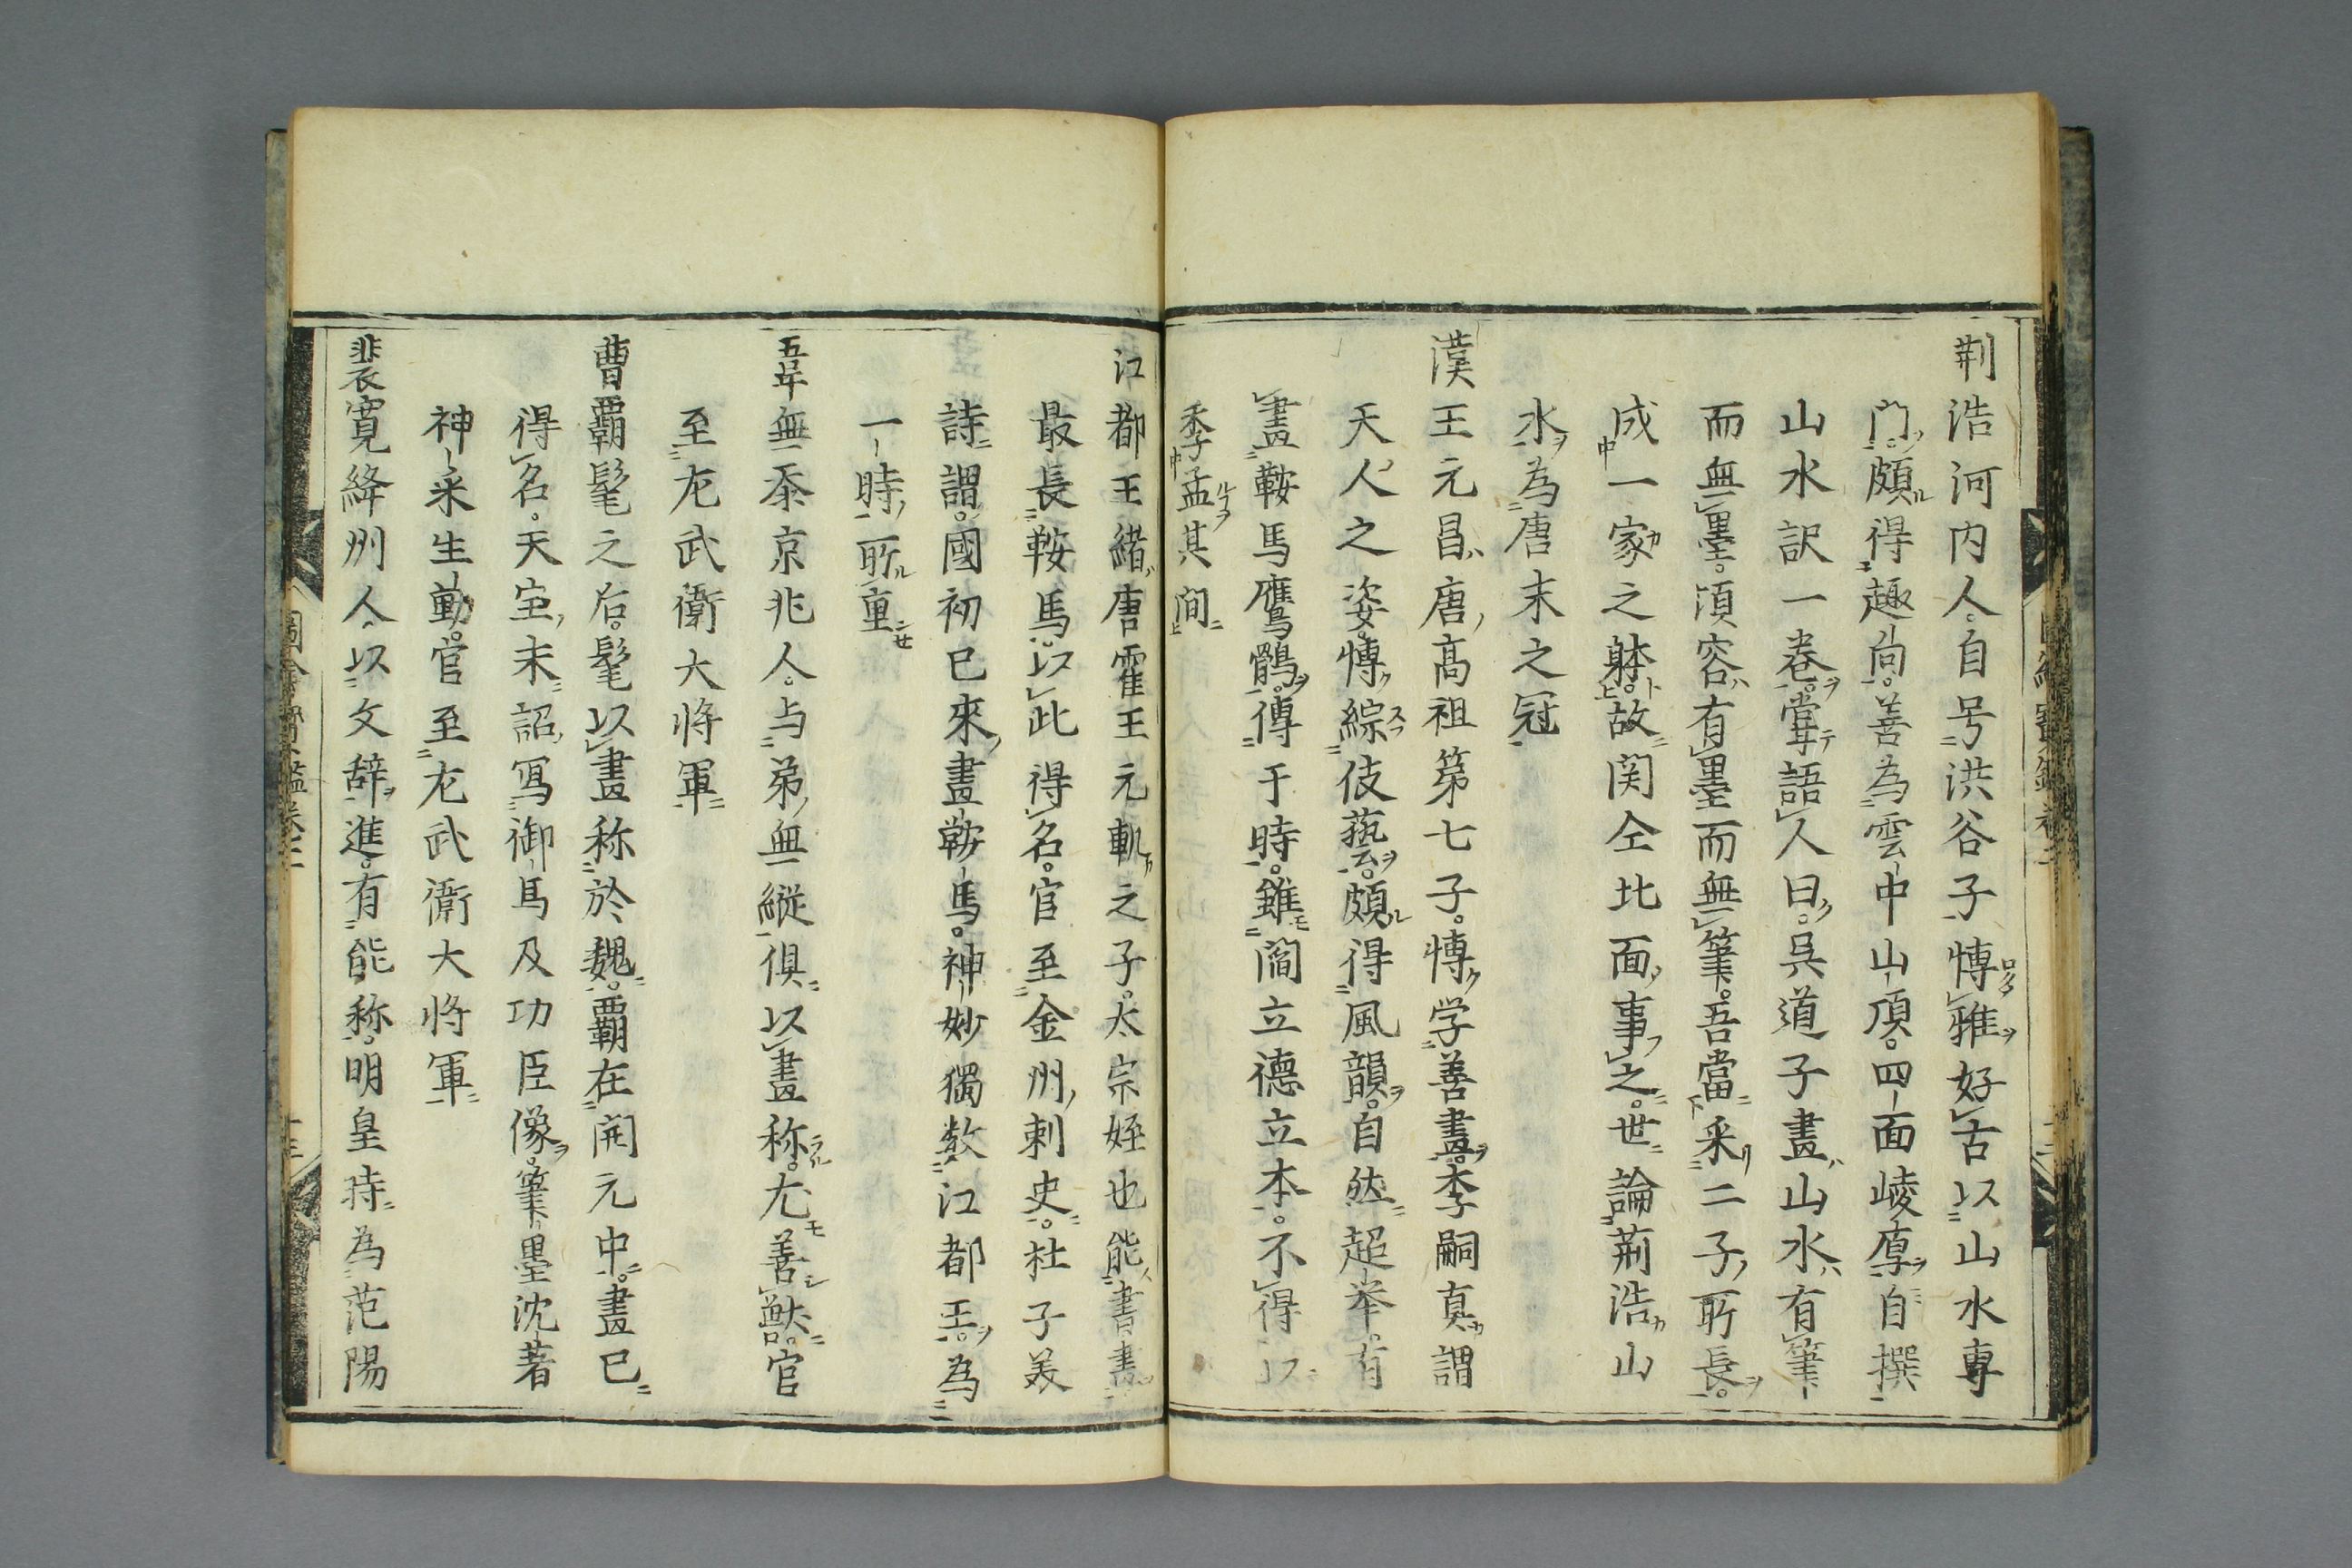 荆浩河内人自号洪谷子博雅好古以山水専
門頗得趣向善為雲中山頂四面崚厚自撰
山水訣一巻嘗語人曰呉道子畫山水有筆
而無墨項容有墨而無筆吾當采二子所長
成一家之躰故関仝北面事之世論荊浩山
水為唐末之冠
漢王元昌唐高祖第七子博学善畫李嗣真謂
天人之姿博綜伎藝頗得風韻自然超举有
畫鞍馬鷹鶻傳于時雖閻立德立本不得以
季孟其間
江都王緒唐霍王元軌之子太宗姪也能書畫
最長鞍馬以此得名官至金州刺史杜子美
詩謂國初已來畫鞍馬神妙獨数江都王為
一時所重
韋無忝京兆人与弟無縦俱以畫称尤善獣官
至左武衛大将軍
曹霸髦之后髦以畫称於魏霸在開元中畫已
得名天宝末詔写御馬及功臣像筆墨沈著
神采生動官至左武衛大将軍
裴寛絳州人以文辞進有能称明皇時為范陽